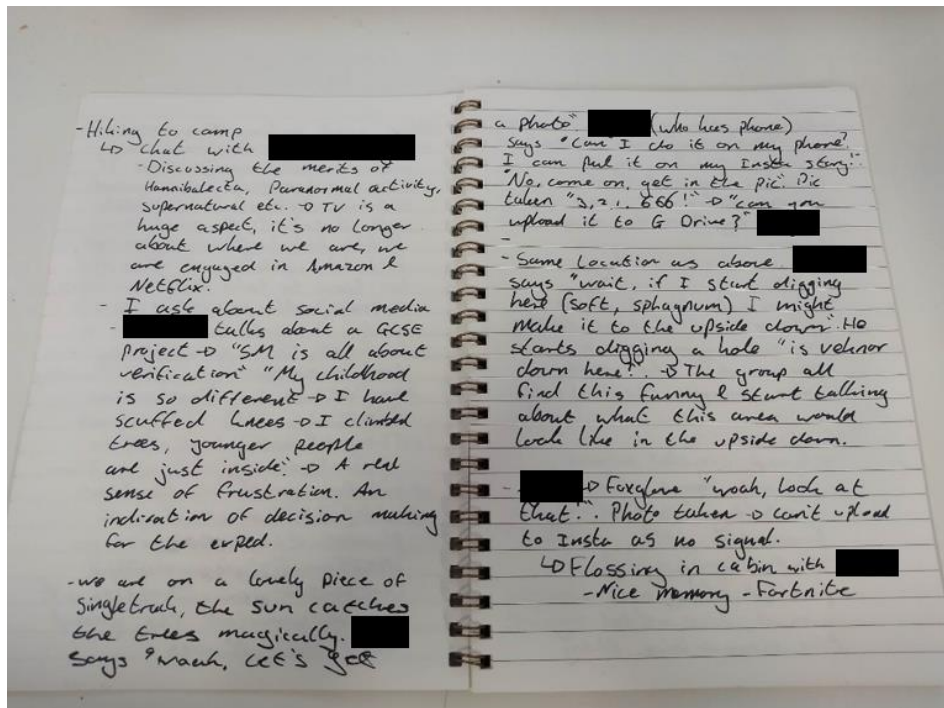 - Hiking to camp
↳ chat with
- Discussing the merits of
Hannibalecta, Paranormal activity,
supernatural etc. → TV is a
huge aspect, it's no longer
about where we are, we
are engaged in Amazon &
Netflix.
- I ask about social media
- talks about a GCSE
project → "SM is all about
verification" "My childhood
is so different → I have
scuffed knees → I climbed
trees, younger people
are just inside." → A real
sense of frustration. An
indication of decision making
for the exped.
- we are on a lovely piece of
singletrack, the sun catches
the trees magically.
says "woah, let's get
a photo" (who has phone)
says "Can I do it on my phone?
I can put it on my Insta story!"
"No, come on, get in the pic". Pic
taken "3, 2, 1, 666!" → "can you
upload it to G Drive?"
-
- Same location as above.
says "wait, if I start digging
here (soft, sphagnum) I might
make it to the upside down". He
starts digging a hole "is
down here?". → The group all
find this funny & start talking
about what this area would
look like in the upside down.
- → Foxglove "woah, look at
that!". Photo taken → can't upload
to Insta as no signal.
↳ Flossing in cabin with
- Nice memory - Fortnite